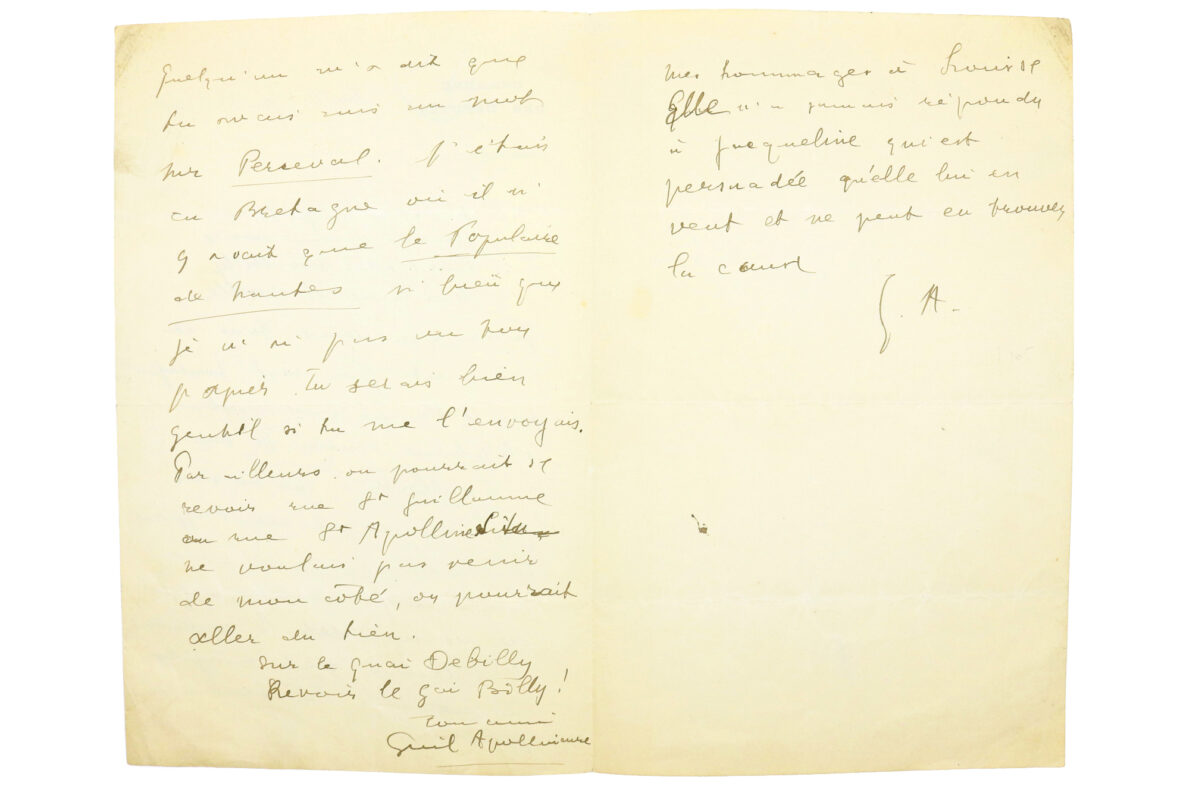 Quelqu'un m'a dit que
tu avais mis un mot
sur Perceval. J'étais
en Bretagne où il n'
y avait que le Populaire
de Nantes si bien que
je n'ai pas vu ton
papier. Tu serais bien
gentil si tu me l'envoyais.
Par ailleurs on pourrait se
revoir rue St Guillaume
ou rue St Apolline Si tu
ne voulais pas venir
de mon côté, on pourrait
aller du tien.
Sur le quai Debilly
Revoir le gai Billy!
ton ami
Guil Apollinaire
Mes hommages à Louise
Elle n'a jamais répondu
à Jacqueline qui est
persuadée qu'elle lui en
veut et ne peut en trouver
la cause
G. A.